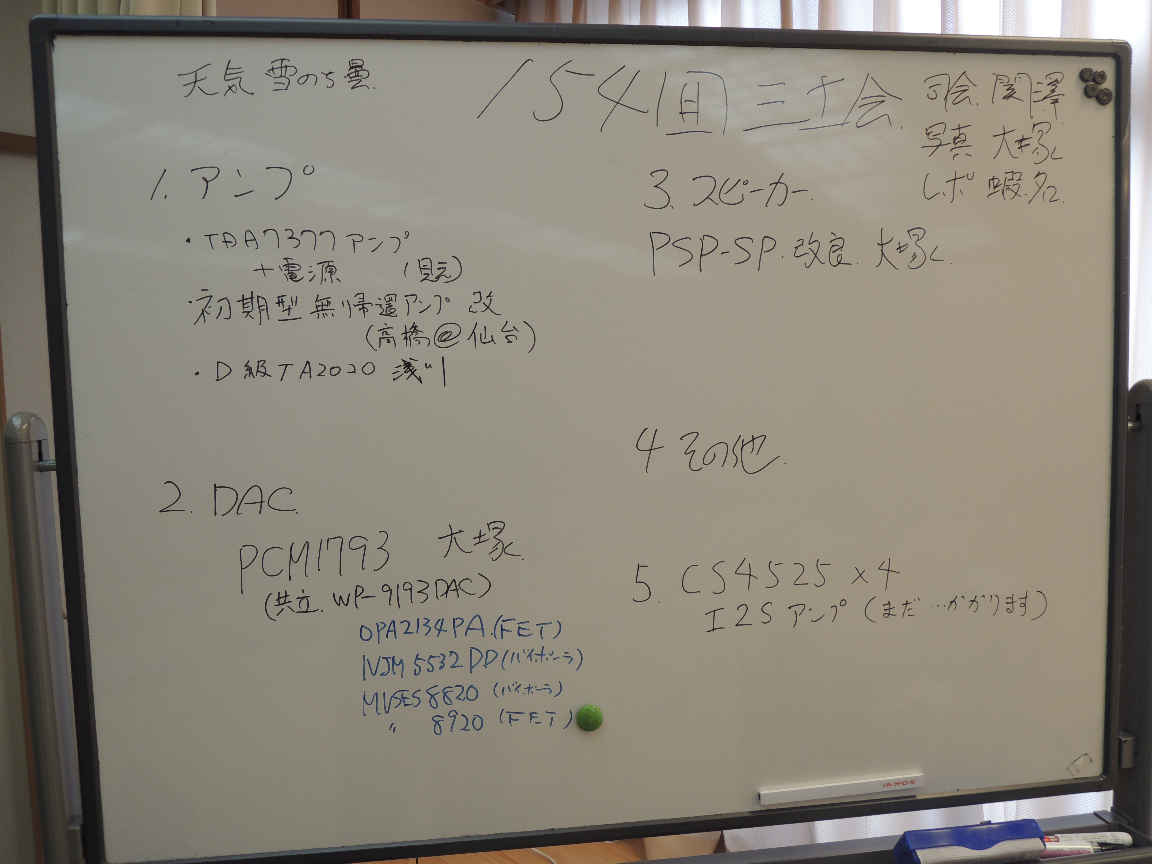 天気 雪のち曇
154回 三土会
司会 関澤
写真 大塚
レポ 蝦名
1. アンプ
・TDA7377 アンプ
＋電源 (見元)
・初期型 無帰還アンプ 改
(高橋@仙台)
・D級TA2020 浅川
2. DAC
PCM1793 大塚
(共立. WP-9193DAC)
OPA2134PA (FET)
NJM5532DD (バイポーラ)
MUSES8820 (バイポーラ)
〃 8920 (FET)
3. スピーカー
PSP-SP. 改良. 大塚
4 その他
5. CS4525 x4
I2S アンプ (まだ…かかります)